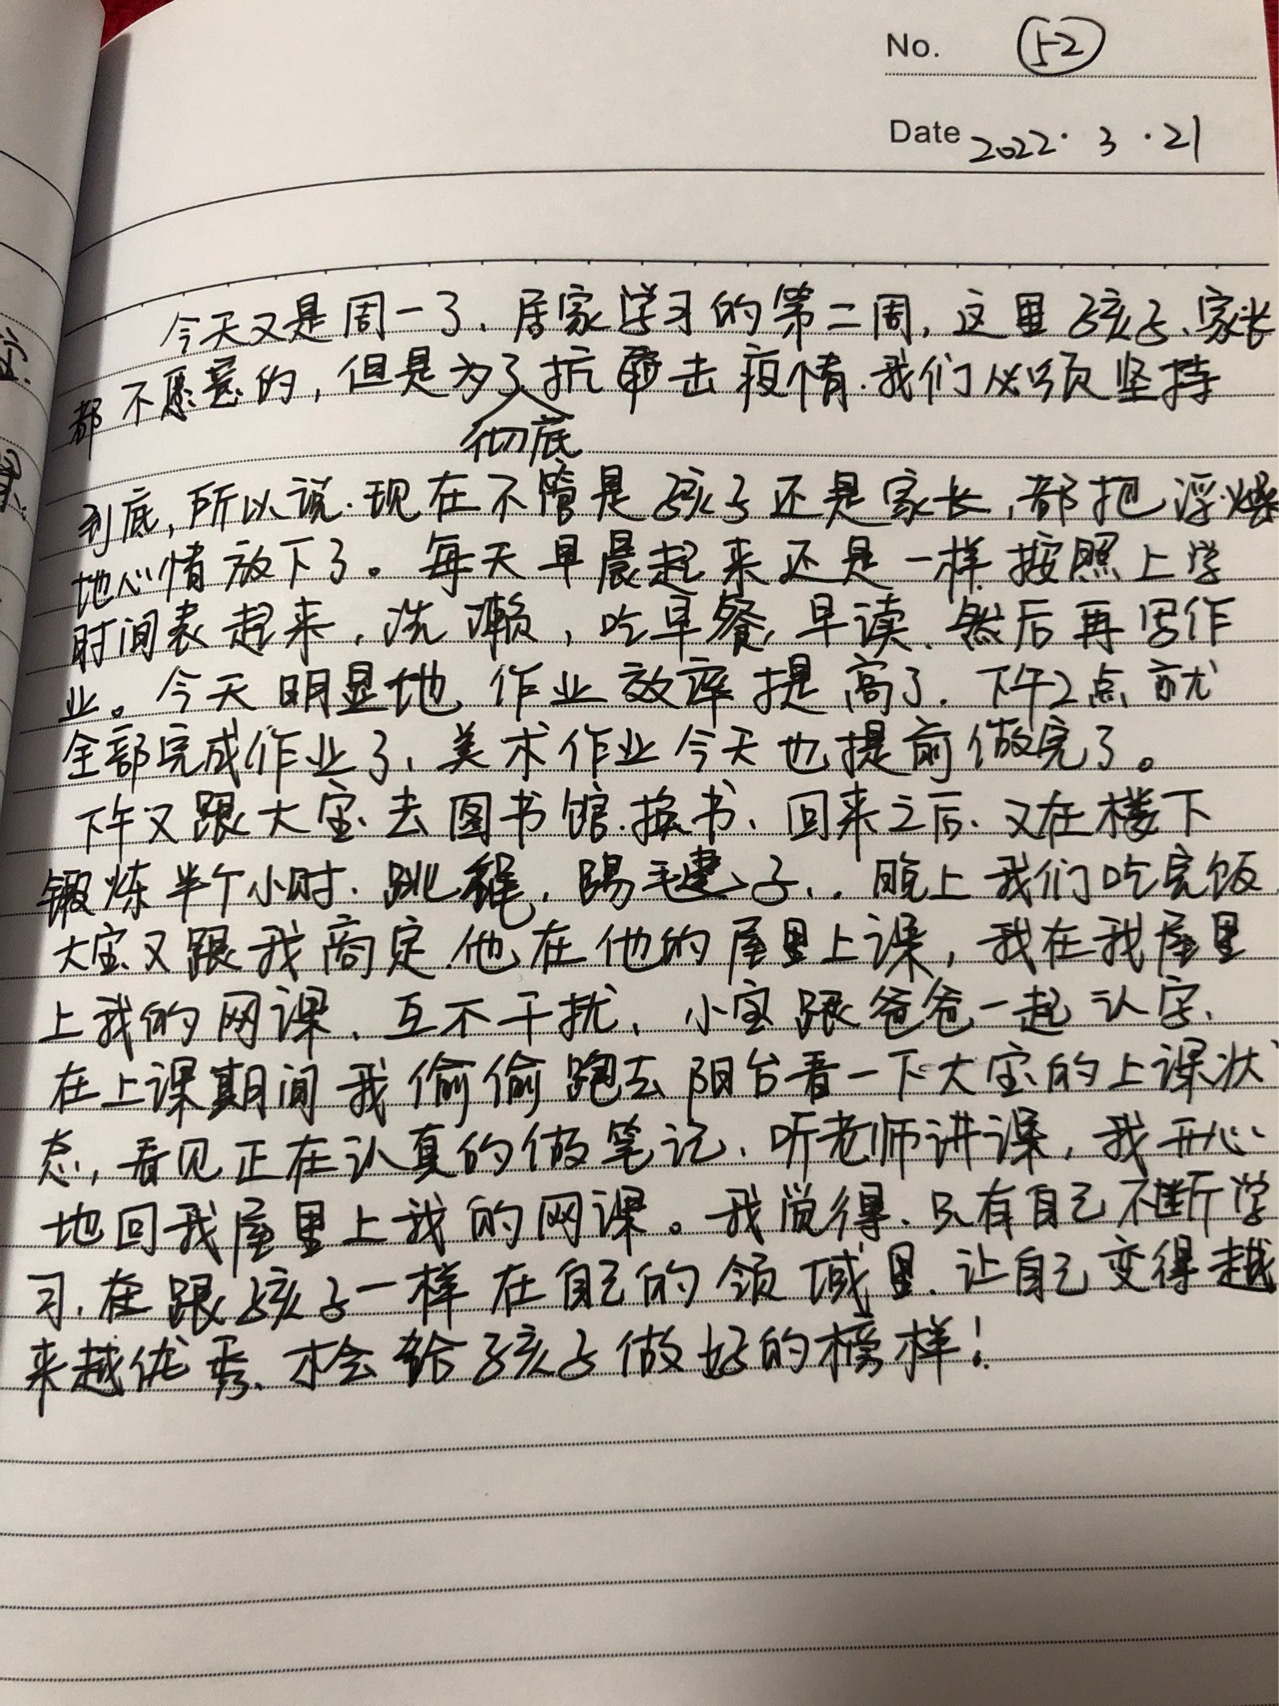 No. 52
Date 2022.3.21
今天又是周一了、居家学习的第二周，这里孩子、家长
都不愿意的，但是为了抗击疫情.我们必须坚持
彻底
到底，所以说.现在不管是孩子还是家长，都把浮躁
地心情放下了。每天早晨起来还是一样按照上学
时间表起来，洗漱，吃早餐，早读，然后再写作
业。今天明显地作业效率提高了.下午2点就
全部完成作业了、美术作业今天也提前做完了。
下午又跟大宝去图书馆.换书、回来之后.又在楼下
锻炼半个小时.跳绳，踢毽子、.晚上我们吃完饭
大宝又跟我商定.他在他的屋里上课，我在我屋里
上我的网课、互不干扰、小宝跟爸爸一起认字、
在上课期间我偷偷跑去阳台看一下大宝的上课状
态，看见正在认真的做笔记、听老师讲课，我开心
地回我屋里上我的网课。我觉得、只有自己不断学
习、在跟孩子一样在自己的领域里.让自己变得越
来越优秀、才会给孩子做好的榜样！